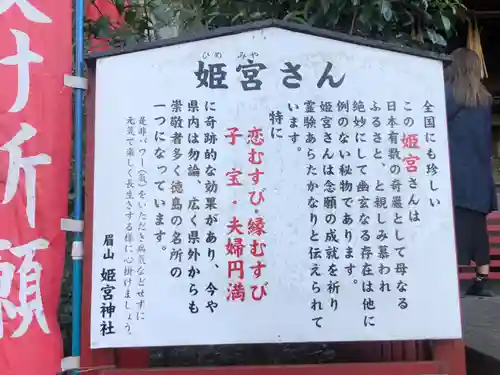 姫宮さん
ひめみや
全国にも珍しい
この姫宮さんは
日本有数の奇巌として母なる
ふるさと、と親しみ慕われ
絶妙にして幽玄なる存在は他に
例のない秘物であります。
姫宮さんは念願の成就を祈り
霊験あらたかなりと伝えられて
います。
特に
恋むすび・縁むすび
子宝・夫婦円満
に奇跡的な効果があり、今や
県内は勿論、広く県外からも
崇敬者多く徳島の名所の
一つになっています。
是非パワー(気)をいただき病気などせずに
元気で楽しく長生きする様に心掛けましょう。
眉山 姫宮神社
祈願